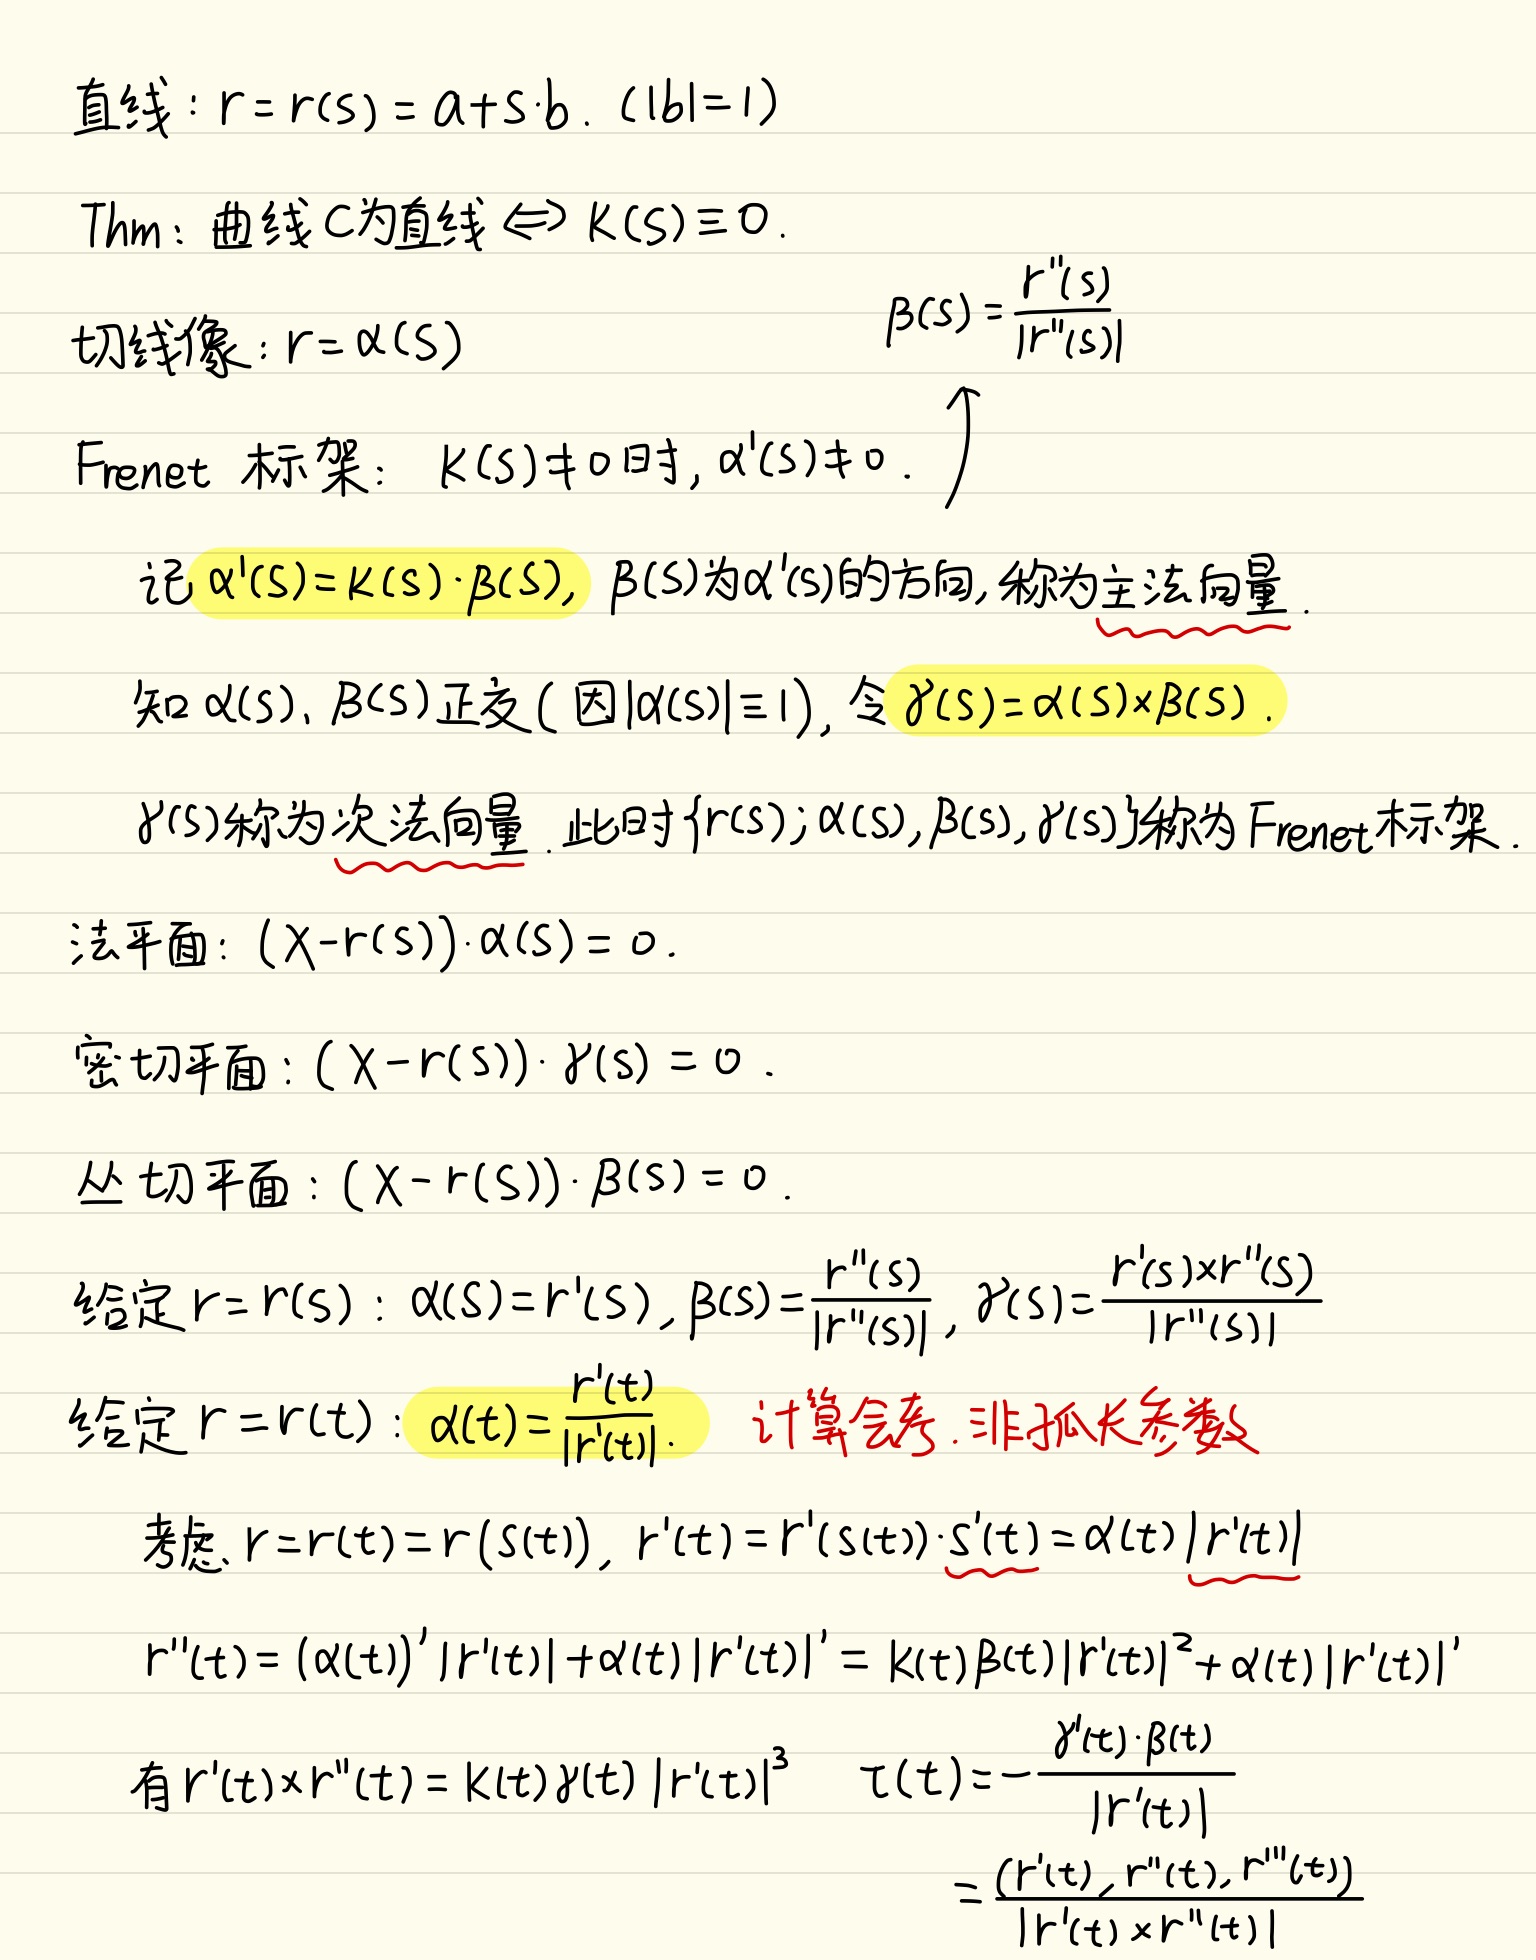 直线：r = r(s) = a+s·b. (|b|=1)
Thm：曲线C为直线 ⇔ κ(s)≡0.
β(s) = r''(s)/|r''(s)|
切线像：r = α(s)
Frenet 标架： κ(s)≠0时, α'(s)≠0.
记 α'(s)=κ(s)·β(s), β(s)为α'(s)的方向, 称为主法向量.
知 α(s)、β(s)正交(因|α(s)|≡1), 令 γ(s)=α(s)×β(s).
γ(s)称为次法向量. 此时{r(s);α(s),β(s),γ(s)}称为Frenet标架.
法平面：(X-r(s))·α(s)=0.
密切平面：(X-r(s))·γ(s)=0.
丛切平面：(X-r(s))·β(s)=0.
给定 r=r(s)：α(s)=r'(s), β(s)=r''(s)/|r''(s)|, γ(s)=r'(s)×r''(s)/|r''(s)|
给定 r=r(t)：α(t)=r'(t)/|r'(t)|. 计算会考. 非孤长参数
考虑 r=r(t)=r(s(t)), r'(t)=r'(s(t))·s'(t)=α(t)|r'(t)|
r''(t)=(α(t))'|r'(t)|+α(t)|r'(t)|'=κ(t)β(t)|r'(t)|²+α(t)|r'(t)|'
有 r'(t)×r''(t)=κ(t)γ(t)|r'(t)|³ τ(t)=-γ'(t)·β(t)/|r'(t)|
=(r'(t),r''(t),r'''(t))/|r'(t)×r''(t)|